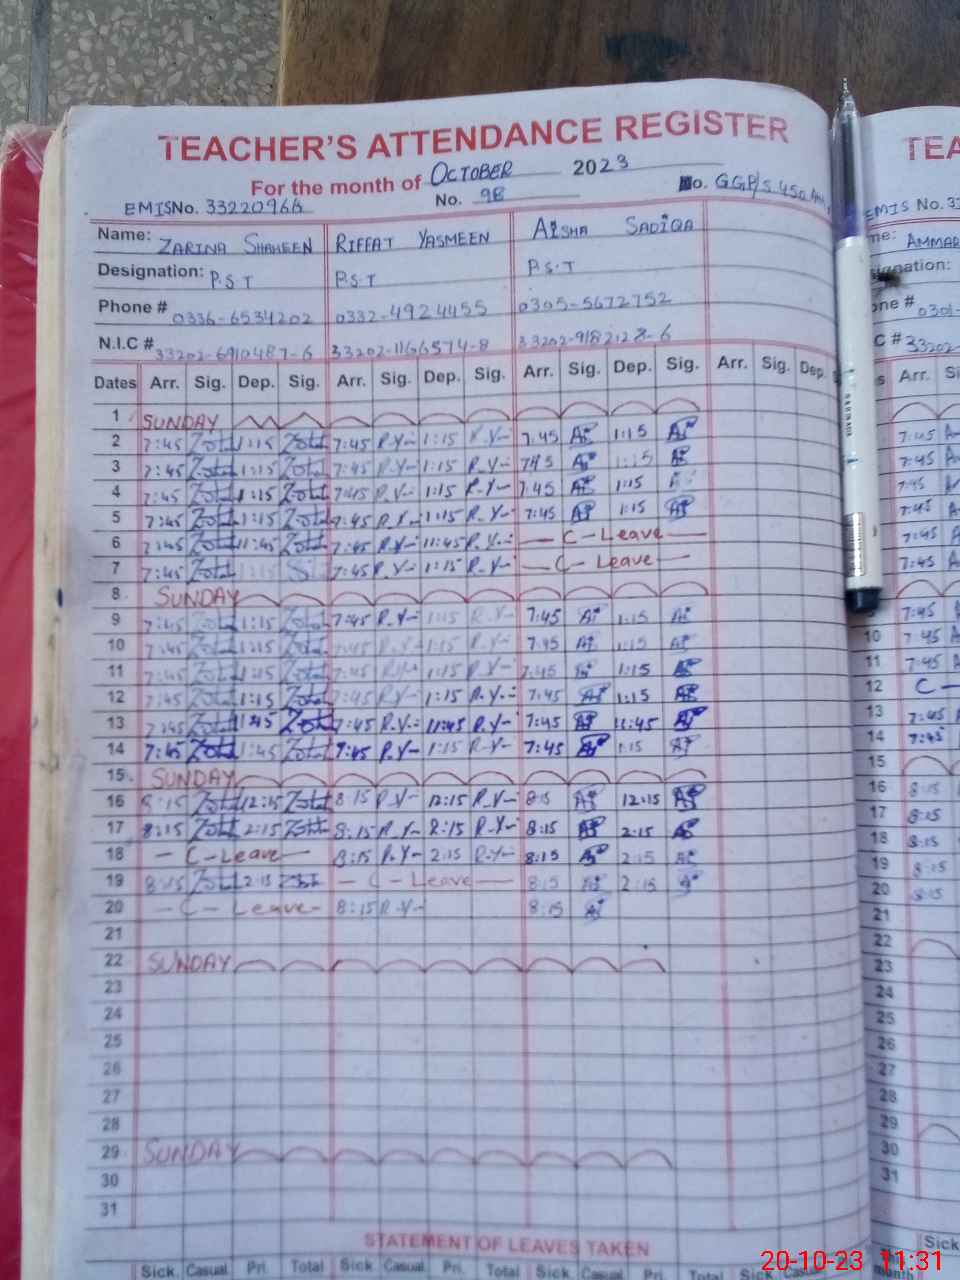 TEACHER'S ATTENDANCE REGISTER
For the month of OCTOBER 2023
EMIS No. 33220966 No. 98
Name: ZARINA SHAHEEN RIFFAT YASMEEN AISHA SADIQA
Designation: P.S.T P.S.T P.S.T
Phone # 0336-6534202 0332-4924455 0305-5672752
N.I.C # 33202-6910487-6 33202-1166574-8 33202-9182128-6
Dates Arr. Sig. Dep. Sig. Arr. Sig. Dep. Sig. Arr. Sig. Dep. Sig. Arr. Sig. Dep.
1 SUNDAY
2 7:45 1:15 7:45 R.Y 1:15 R.Y 7:45 1:15
3 7:45 1:15 7:45 R.Y 1:15 R.Y 745 1:15
4 7:45 1:15 7:45 R.Y 1:15 R.Y 7:45 1:15
5 7:45 1:15 7:45 R.Y 1:15 R.Y 7:45 1:15
6 7:45 11:45 7:45 R.Y 11:45 R.Y — C - Leave —
7 7:45 1:15 7:45 R.Y 1:15 R.Y — C - Leave —
8 SUNDAY
9 7:45 1:15 7:45 R.Y 1:15 R.Y 7:45 1:15
10 7:45 1:15 7:45 R.Y 1:15 R.Y 7:45 1:15
11 7:45 1:15 7:45 R.Y 1:15 R.Y 7:45 1:15
12 7:45 1:15 7:45 R.Y 1:15 R.Y 7:45 1:15
13 7:45 11:45 7:45 R.Y 11:45 R.Y 7:45 11:45
14 7:45 1:45 7:45 R.Y 1:15 R.Y 7:45 1:15
15 SUNDAY
16 8:15 12:15 8:15 R.Y 12:15 R.Y 8:15 12:15
17 8:15 2:15 8:15 R.Y 2:15 R.Y 8:15 2:15
18 — C - Leave — 8:15 R.Y 2:15 R.Y 8:15 2:15
19 8:15 2:15 — C - Leave — 8:15 2:15
20 — C - Leave - 8:15 R.Y 8:15
21
22 SUNDAY
23
24
25
26
27
28
29 SUNDAY
30
31
STATEMENT OF LEAVES TAKEN
Sick Casual Pri. Total Sick Casual Pri. Total Sick Casual Pri. Total Sick
TEA
EMIS No.
AMMAD
Arr.
7:45
7:45
7:45
7:45
7:45
7:45
7:45
10 7:45
11 7:45
12 C -
13 7:45
14 7:45
15
16 8:15
17 8:15
18 8:15
19 8:15
20 8:15
21
22
23
24
25
26
27
28
29
30
31
Sick
month
20-10-23 11:31